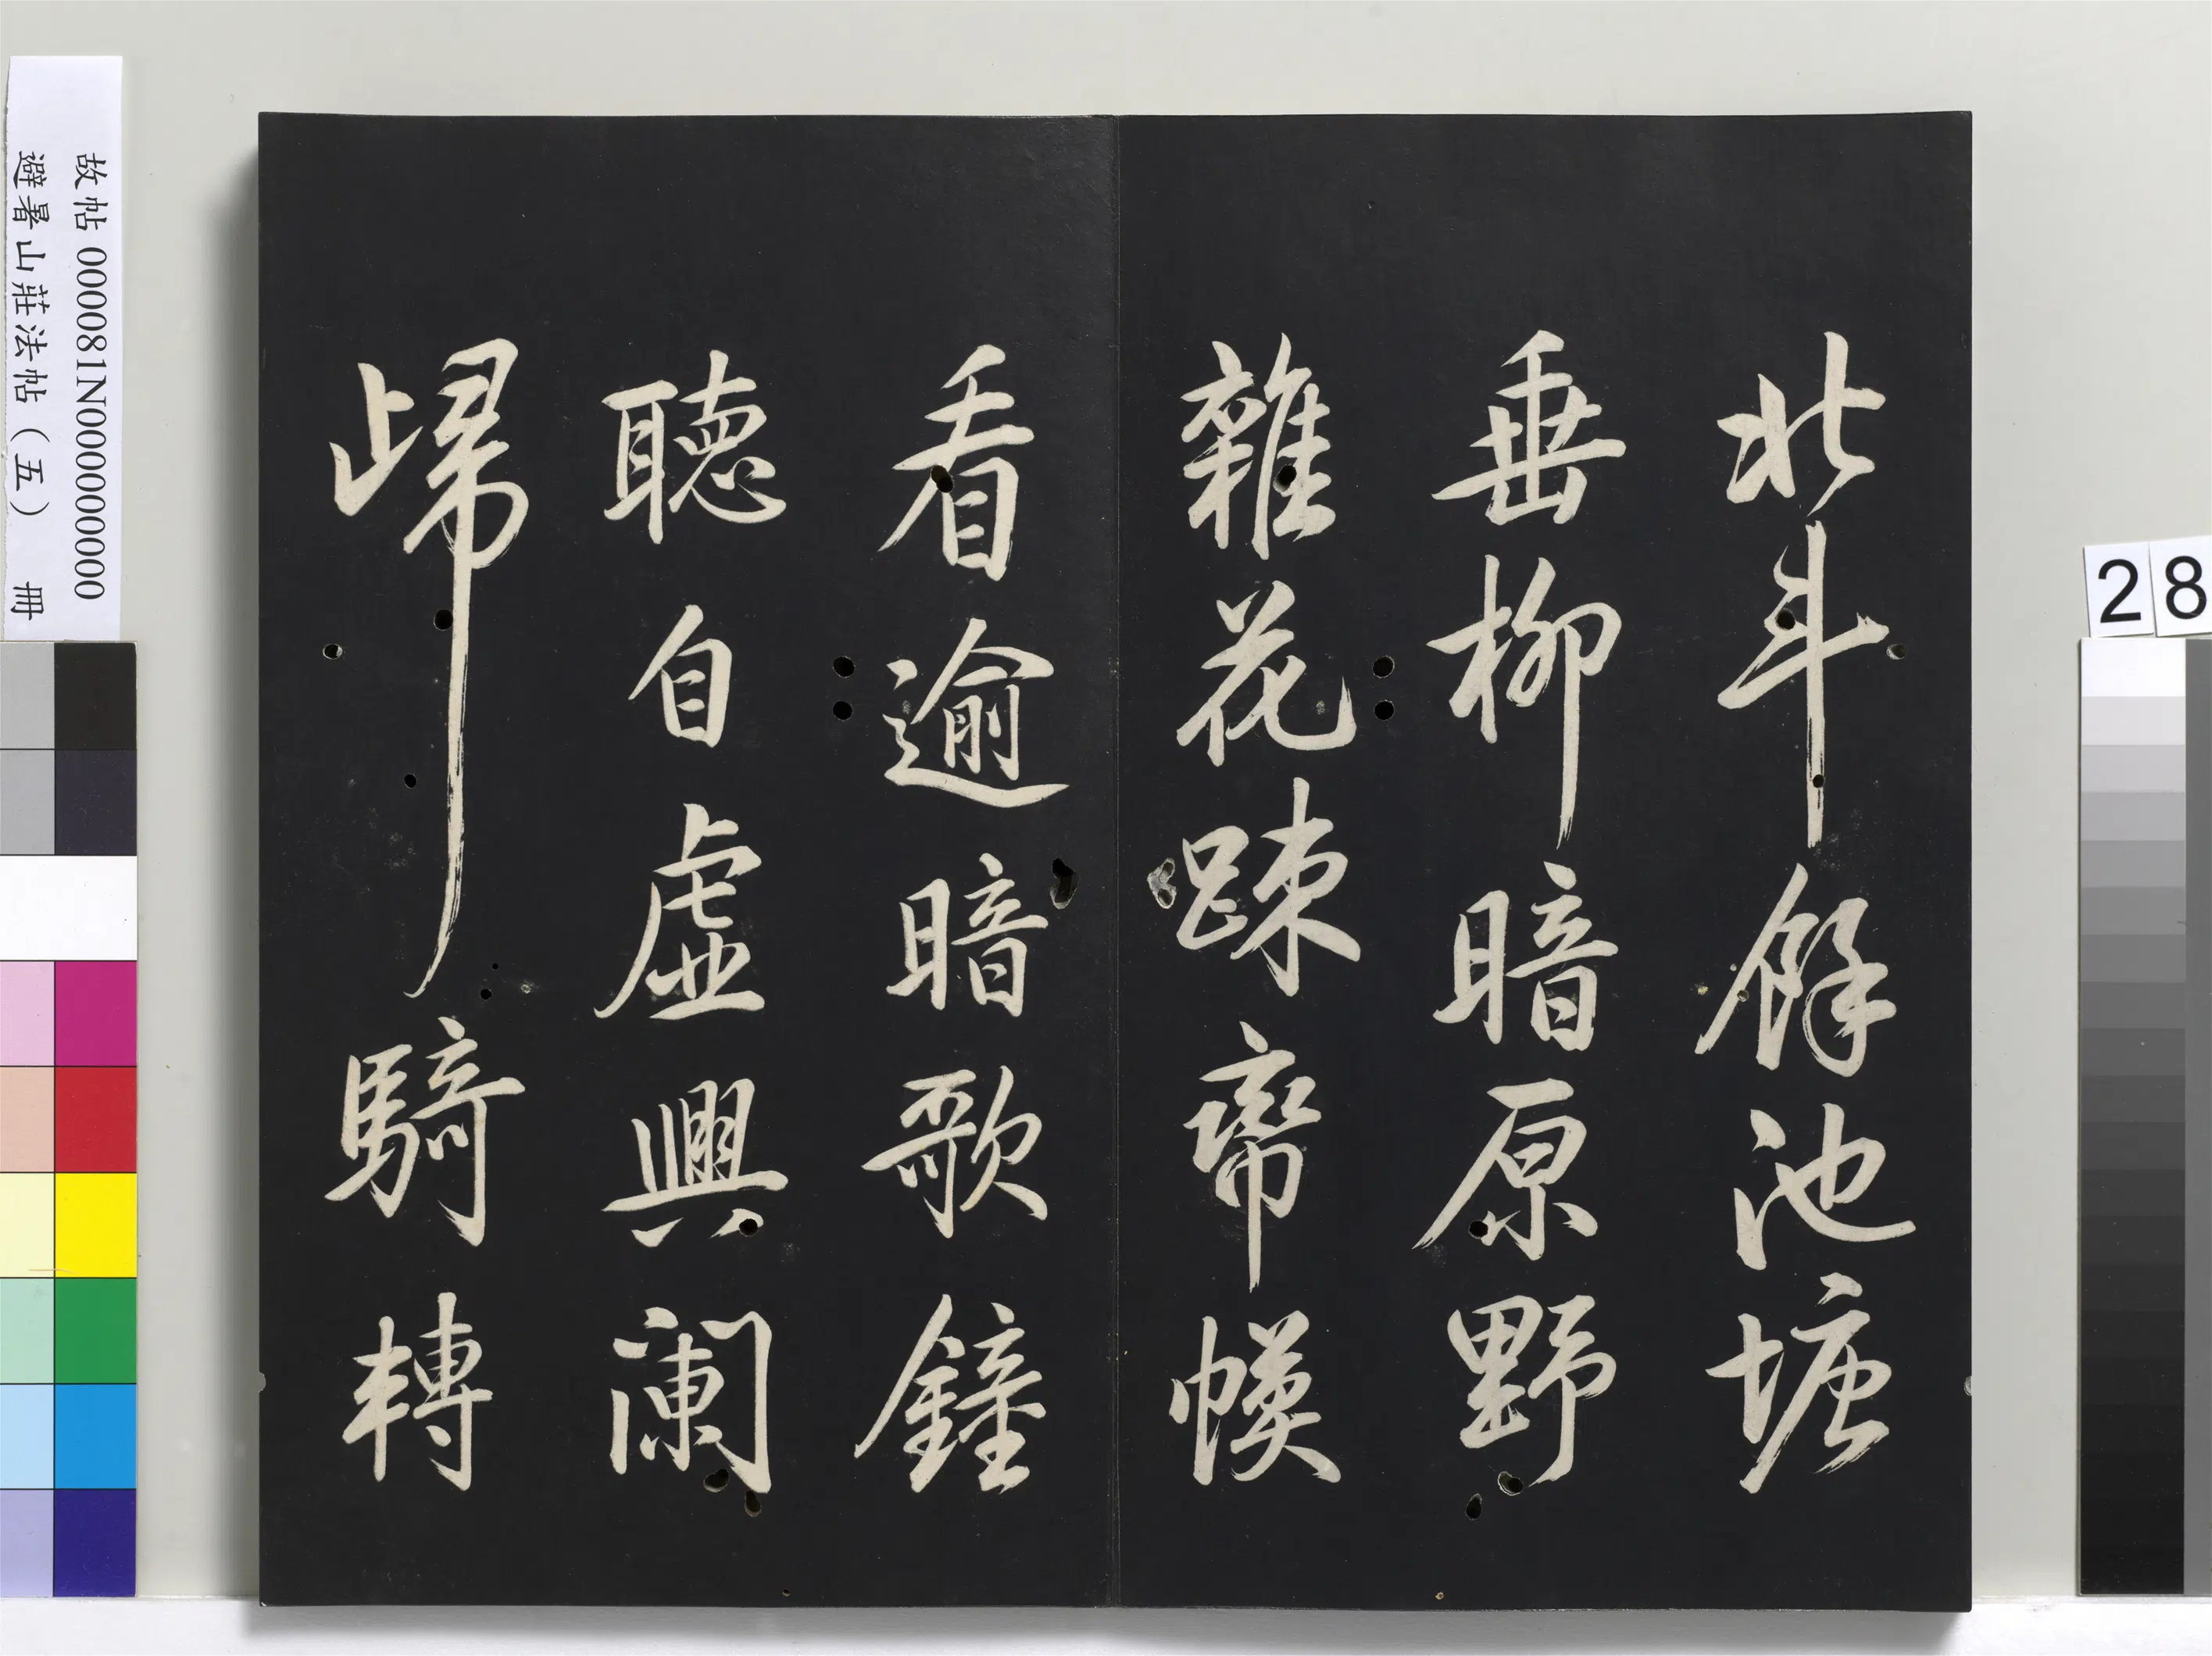 北斗餘池塘
垂柳暗原野
雜花踈帟幙
看逾暗歌鐘
聽自虛興闌
歸騎轉
故帖 000081N000000000
避暑山莊法帖（五） 冊
28